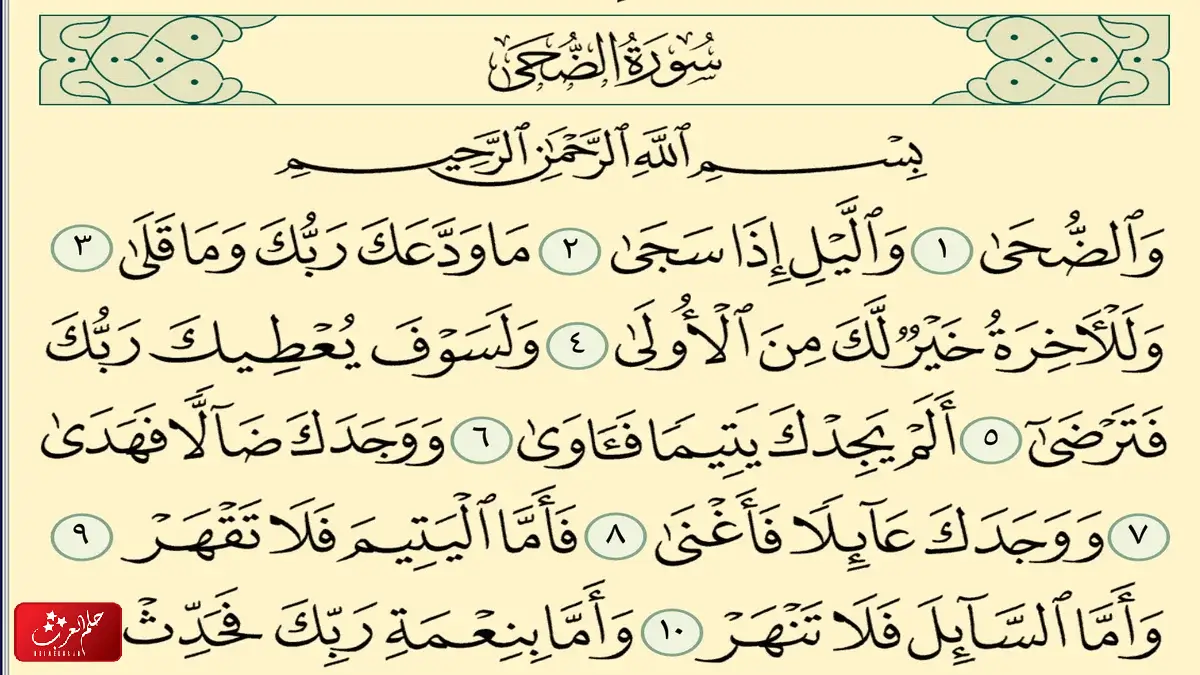 سُورَةُ الضُّحَىٰ
بِسْمِ ٱللَّهِ ٱلرَّحْمَٰنِ ٱلرَّحِيمِ
وَٱلضُّحَىٰ ١ وَٱلَّيْلِ إِذَا سَجَىٰ ٢ مَا وَدَّعَكَ رَبُّكَ وَمَا قَلَىٰ ٣
وَلَلْأَخِرَةُ خَيْرٌ لَّكَ مِنَ ٱلْأُولَىٰ ٤ وَلَسَوْفَ يُعْطِيكَ رَبُّكَ
فَتَرْضَىٰٓ ٥ أَلَمْ يَجِدْكَ يَتِيمًا فَـَٔاوَىٰ ٦ وَوَجَدَكَ ضَآلًّا فَهَدَىٰ
٧ وَوَجَدَكَ عَآئِلًا فَأَغْنَىٰ ٨ فَأَمَّا ٱلْيَتِيمَ فَلَا تَقْهَرْ ٩
وَأَمَّا ٱلسَّآئِلَ فَلَا تَنْهَرْ ١٠ وَأَمَّا بِنِعْمَةِ رَبِّكَ فَحَدِّثْ
حلم العرب